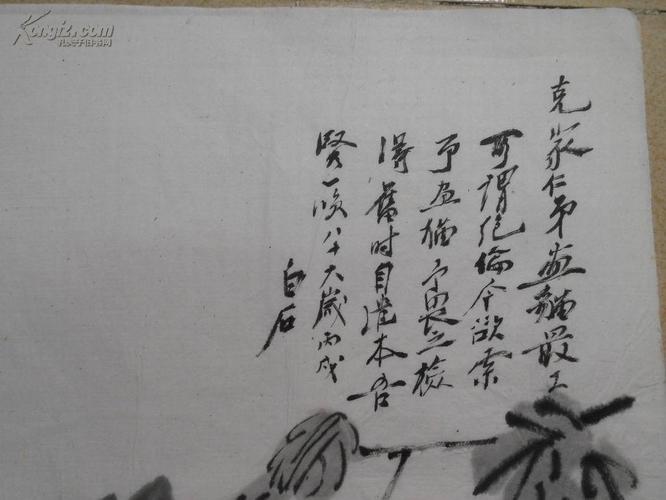 克家仁弟画猫最工
可谓绝伦今欲索
予画猫予畏之检
得旧时自造本吾
贤一笑八十六岁丙戌
白石
Kongfz.com
孔夫子旧书网